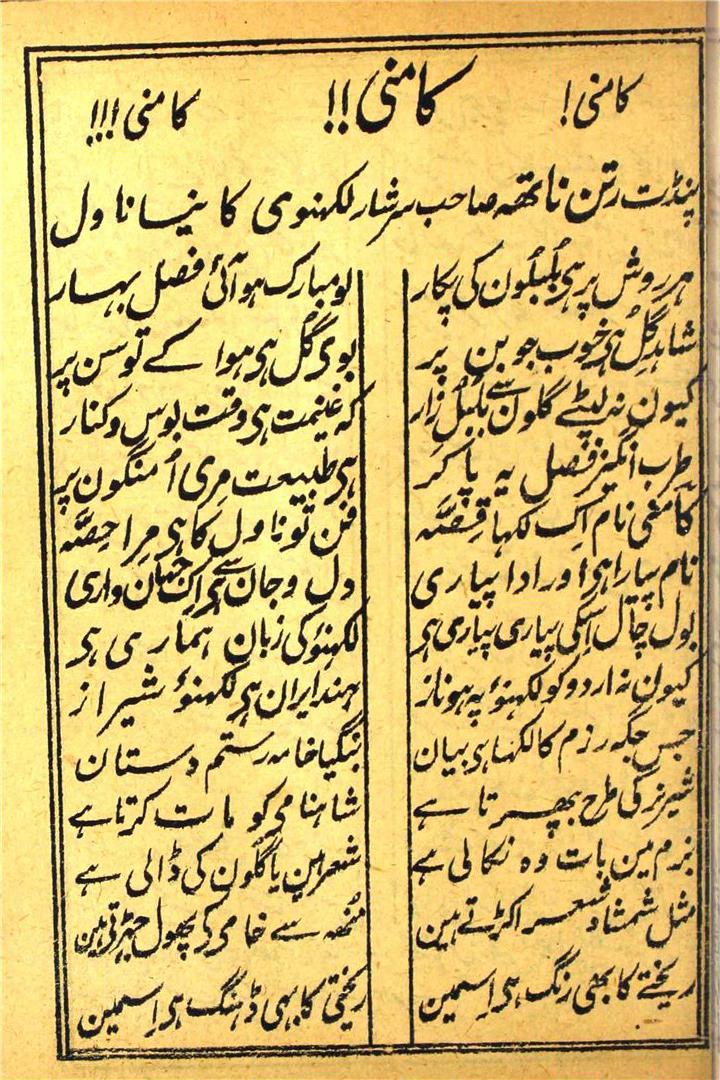 کامنی! کامنی!! کامنی!!!
پنڈت رتن ناتھہ صاحب سرشار لکھنوی کا نیا ناول
ہر روش پر ہی بُلبُلون کی پکار لو مبارک ہو آئی فصل بہار
شاہد گل ہی خوب جوبن پر بوی گُل ہی ہوا کے توسن پر
کیون نہ لپٹے گلون سے بُلبُل زار کہ غنیمت ہی وقت بوس و کنار
طرب انگیز فصل یہ پا کر ہی طبیعت مِری اُمنگون پر
کامنی نام اِک لکھا قِصّہ فن تو ناول کا ہی مِرا حِصّہ
نام پیارا ہی اور ادا پیاری دل و جان سے ہی اِک جہان واری
بول چال اِسکی پیاری پیاری ہی لکھنؤ کی زبان ہماری ہی
کیون نہ اردو کو لکھنؤ پہ ہو ناز ہند ایران ہی لکھنؤ شیراز
جس جگہ رزم کا لکھا ہی بیان بنگیا خامہ رستم دستان
شیر نر کی طرح بھرتا ہے شاہنامی کو مات کرتا ہے
بزم مین بات وہ نکالی ہے شعر ہین یا گلون کی ڈالی ہے
مثل شمشاد شعر اکڑتے ہین مُنھہ سے خامی کی پھول جھڑتی ہین
ریختے کا بھی رنگ ہی اِسمین ریختی کا بہی ڈہنگ ہی اِسمین